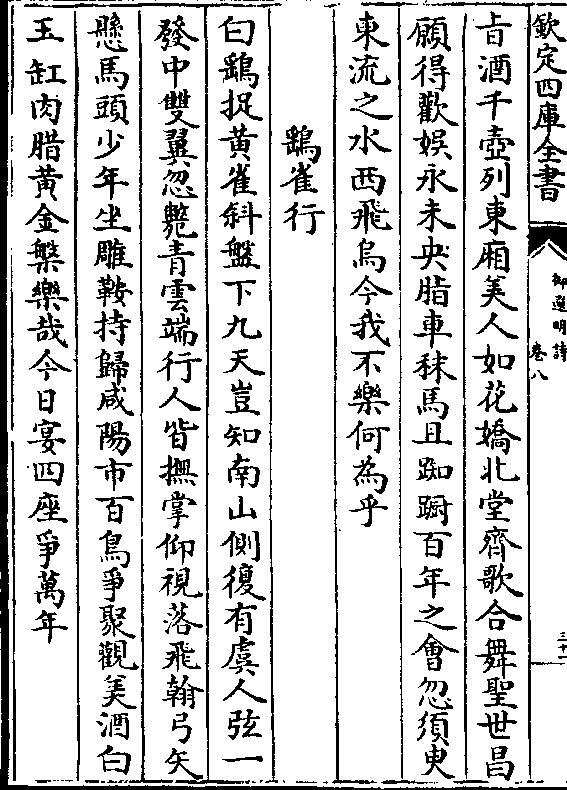 欽定四庫全書
御選明詩
卷八
三十一
旨酒千壺列東廂美人如花嬌北堂齊歌合舞聖世昌
願得歡娱永未央脂車秣馬且踟蹰百年之會忽須臾
東流之水西飛烏今我不樂何為乎
鷂雀行
白鷂捉黃雀斜盤下九天豈知南山側復有虞人弦一
發中雙翼忽斃青雲端行人皆撫掌仰視落飛翰弓矢
懸馬頭少年坐雕鞍持歸咸陽市百鳥爭聚觀美酒白
玉缸肉腊黃金槃樂哉今日宴四座爭萬年